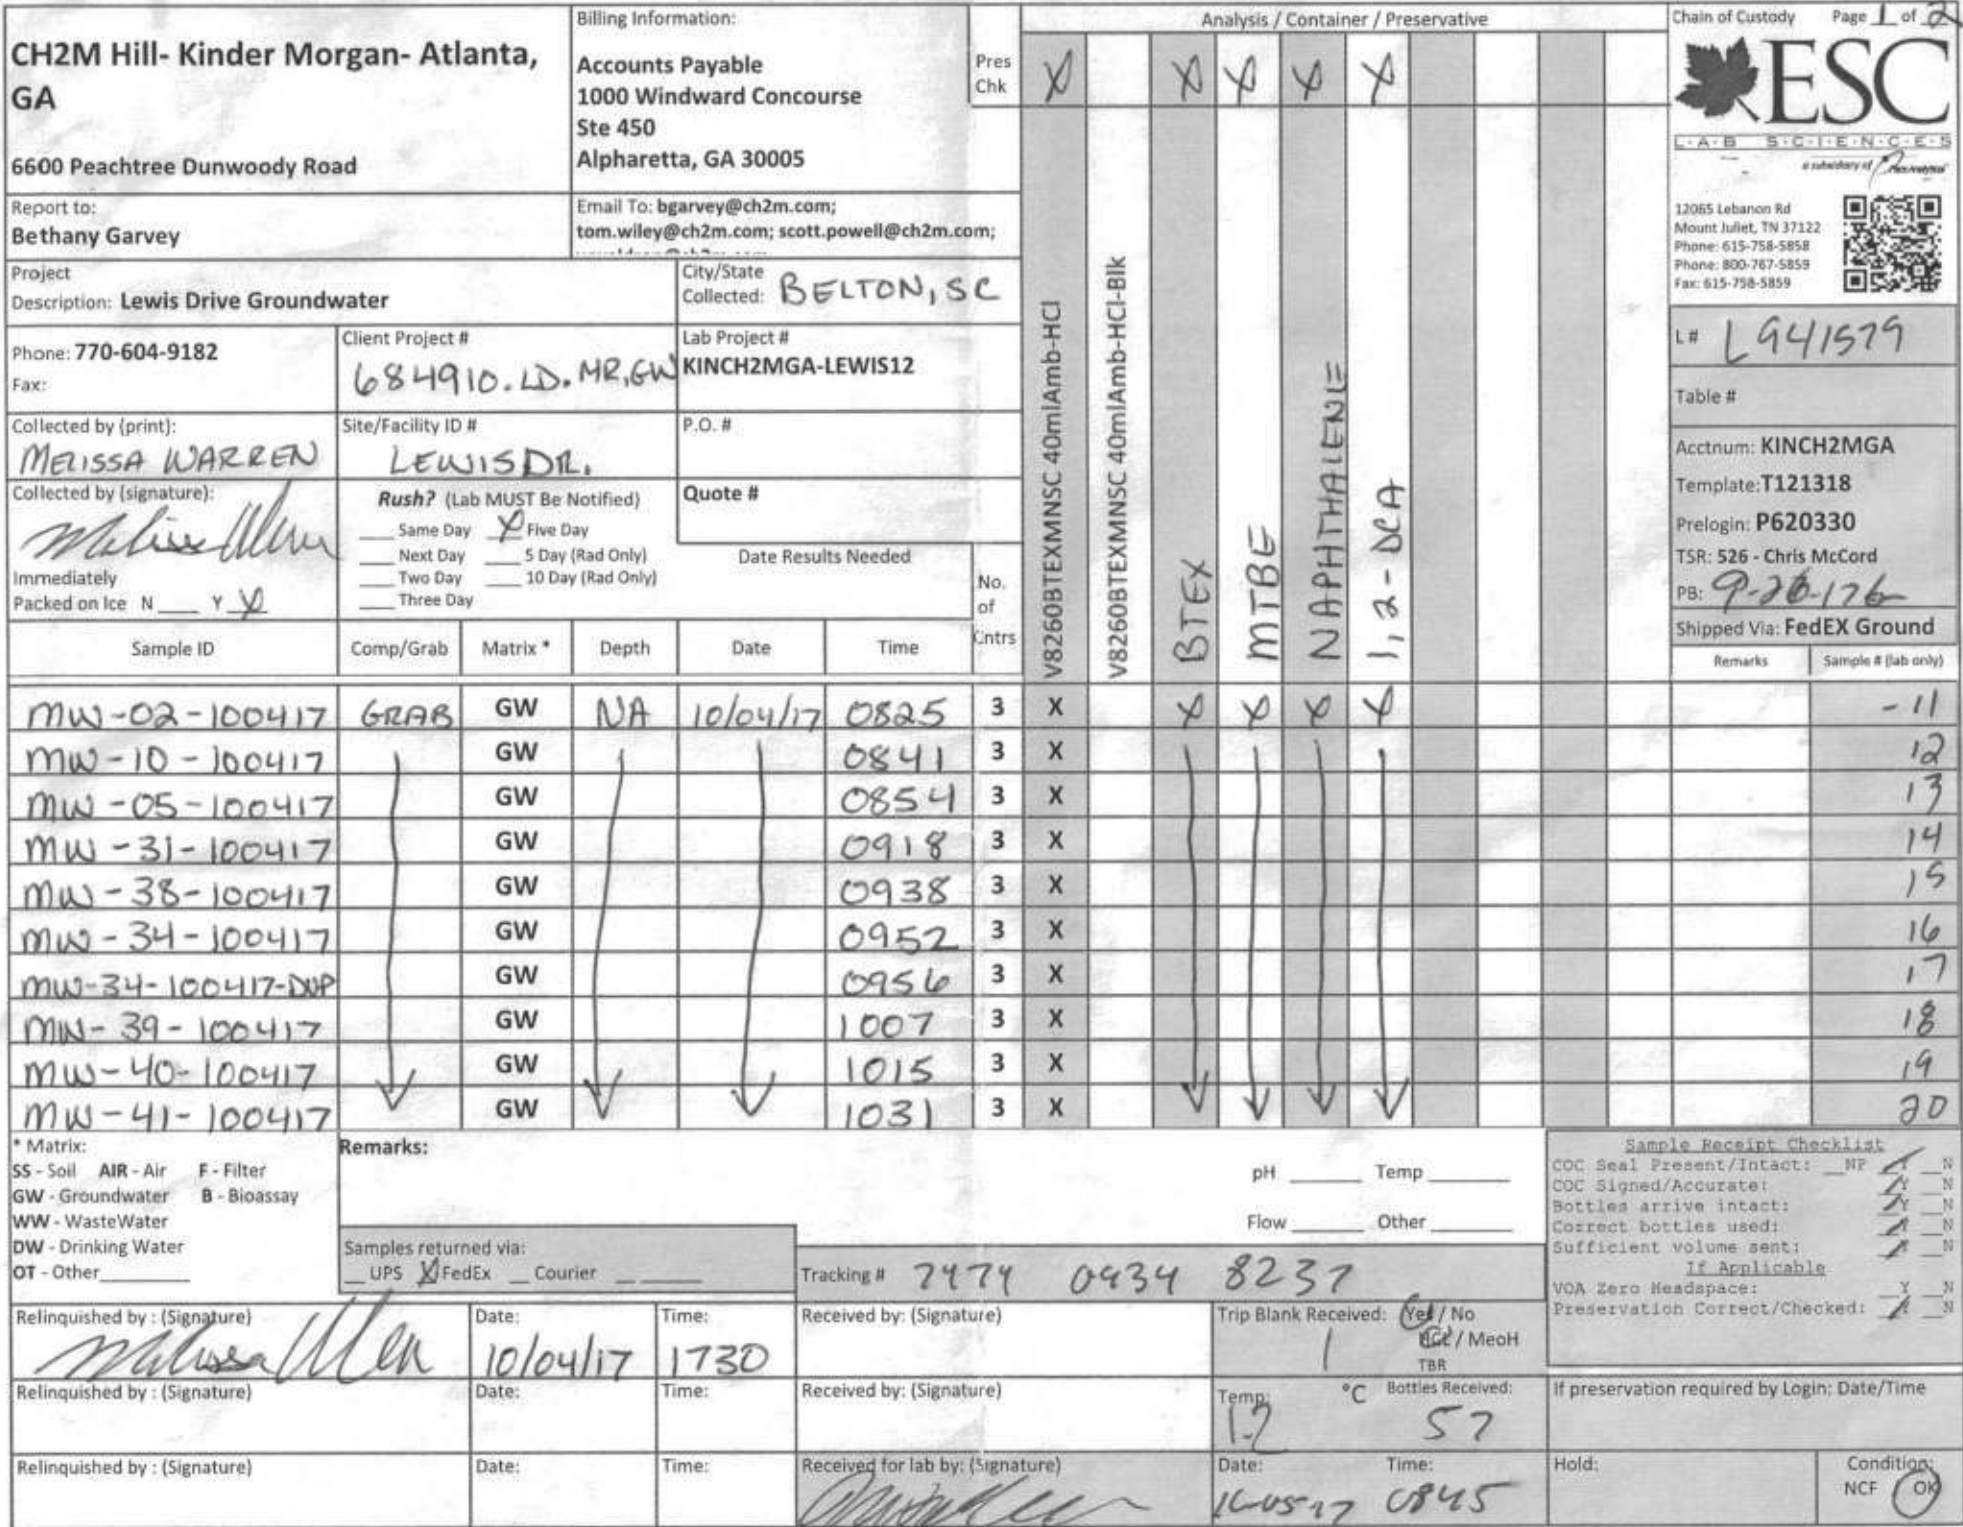 Chain of Custody Page 1 of 2
CH2M Hill- Kinder Morgan- Atlanta,
GA
6600 Peachtree Dunwoody Road
Billing Information:
Accounts Payable
1000 Windward Concourse
Ste 450
Alpharetta, GA 30005
Pres
Chk
Analysis / Container / Preservative
X X X X X
ESC
L·A·B S·C·I·E·N·C·E·S
a subsidiary of
12065 Lebanon Rd
Mount Juliet, TN 37122
Phone: 615-758-5858
Phone: 800-767-5859
Fax: 615-758-5859
Report to:
Bethany Garvey
Email To: bgarvey@ch2m.com;
tom.wiley@ch2m.com; scott.powell@ch2m.com;
Project
Description: Lewis Drive Groundwater
City/State
Collected: BELTON, SC
Phone: 770-604-9182
Fax:
Client Project #
684910.LD.MR.GW
Lab Project #
KINCH2MGA-LEWIS12
Collected by (print):
MELISSA WARREN
Site/Facility ID #
LEWIS DR.
P.O. #
Collected by (signature):
Immediately
Packed on Ice N ___ Y X
Rush? (Lab MUST Be Notified)
___ Same Day X Five Day
___ Next Day ___ 5 Day (Rad Only)
___ Two Day ___ 10 Day (Rad Only)
___ Three Day
Quote #
Date Results Needed
No.
of
Cntrs
V8260BTEXMNSC 40mlAmb-HCl
V8260BTEXMNSC 40mlAmb-HCl-Blk
BTEX
MTBE
NAPHTHALENE
1,2-DCA
L# L941579
Table #
Acctnum: KINCH2MGA
Template: T121318
Prelogin: P620330
TSR: 526 - Chris McCord
PB:
Shipped Via: FedEX Ground
Sample ID Comp/Grab Matrix * Depth Date Time Remarks Sample # (lab only)
MW-02-100417 GRAB GW NA 10/04/17 0825 3 X X X X X -11
MW-10-100417 GW 0841 3 X 12
MW-05-100417 GW 0854 3 X 13
MW-31-100417 GW 0918 3 X 14
MW-38-100417 GW 0938 3 X 15
MW-34-100417 GW 0952 3 X 16
MW-34-100417-DUP GW 0956 3 X 17
MW-39-100417 GW 1007 3 X 18
MW-40-100417 GW 1015 3 X 19
MW-41-100417 GW 1031 3 X 20
* Matrix:
SS - Soil AIR - Air F - Filter
GW - Groundwater B - Bioassay
WW - WasteWater
DW - Drinking Water
OT - Other
Remarks:
pH ___ Temp ___
Flow ___ Other ___
Samples returned via:
__ UPS X FedEx __ Courier
Tracking # 7474 0434 8237
Sample Receipt Checklist
COC Seal Present/Intact: __NP Y __N
COC Signed/Accurate: Y __N
Bottles arrive intact: Y __N
Correct bottles used: Y __N
Sufficient volume sent: Y __N
If Applicable
VOA Zero Headspace: __Y __N
Preservation Correct/Checked: Y __N
Relinquished by : (Signature)
Date: 10/04/17
Time: 1730
Received by: (Signature)
Trip Blank Received: Yes / No
1 HCL / MeoH
TBR
Relinquished by : (Signature)
Date:
Time:
Received by: (Signature)
Temp: 1.2 °C
Bottles Received: 57
If preservation required by Login: Date/Time
Relinquished by : (Signature)
Date:
Time:
Received for lab by: (Signature)
Date: 10-05-17
Time: 0845
Hold:
Condition:
NCF / OK